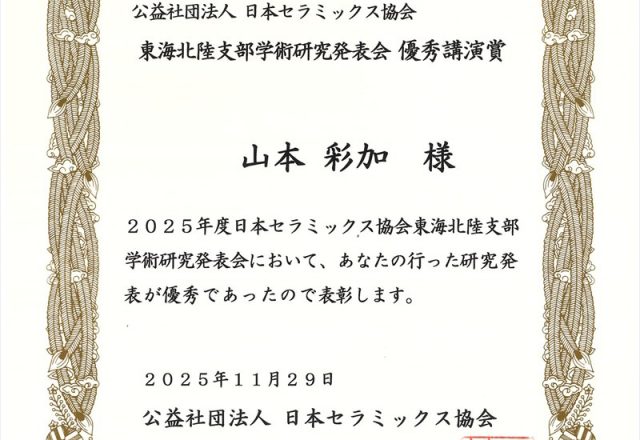 公益社団法人 日本セラミックス協会
東海北陸支部学術研究発表会 優秀講演賞
山本 彩加　様
２０２５年度日本セラミックス協会東海北陸支部
学術研究発表会において、あなたの行った研究発
表が優秀であったので表彰します。
２０２５年１１月２９日
公益社団法人 日本セラミックス協会